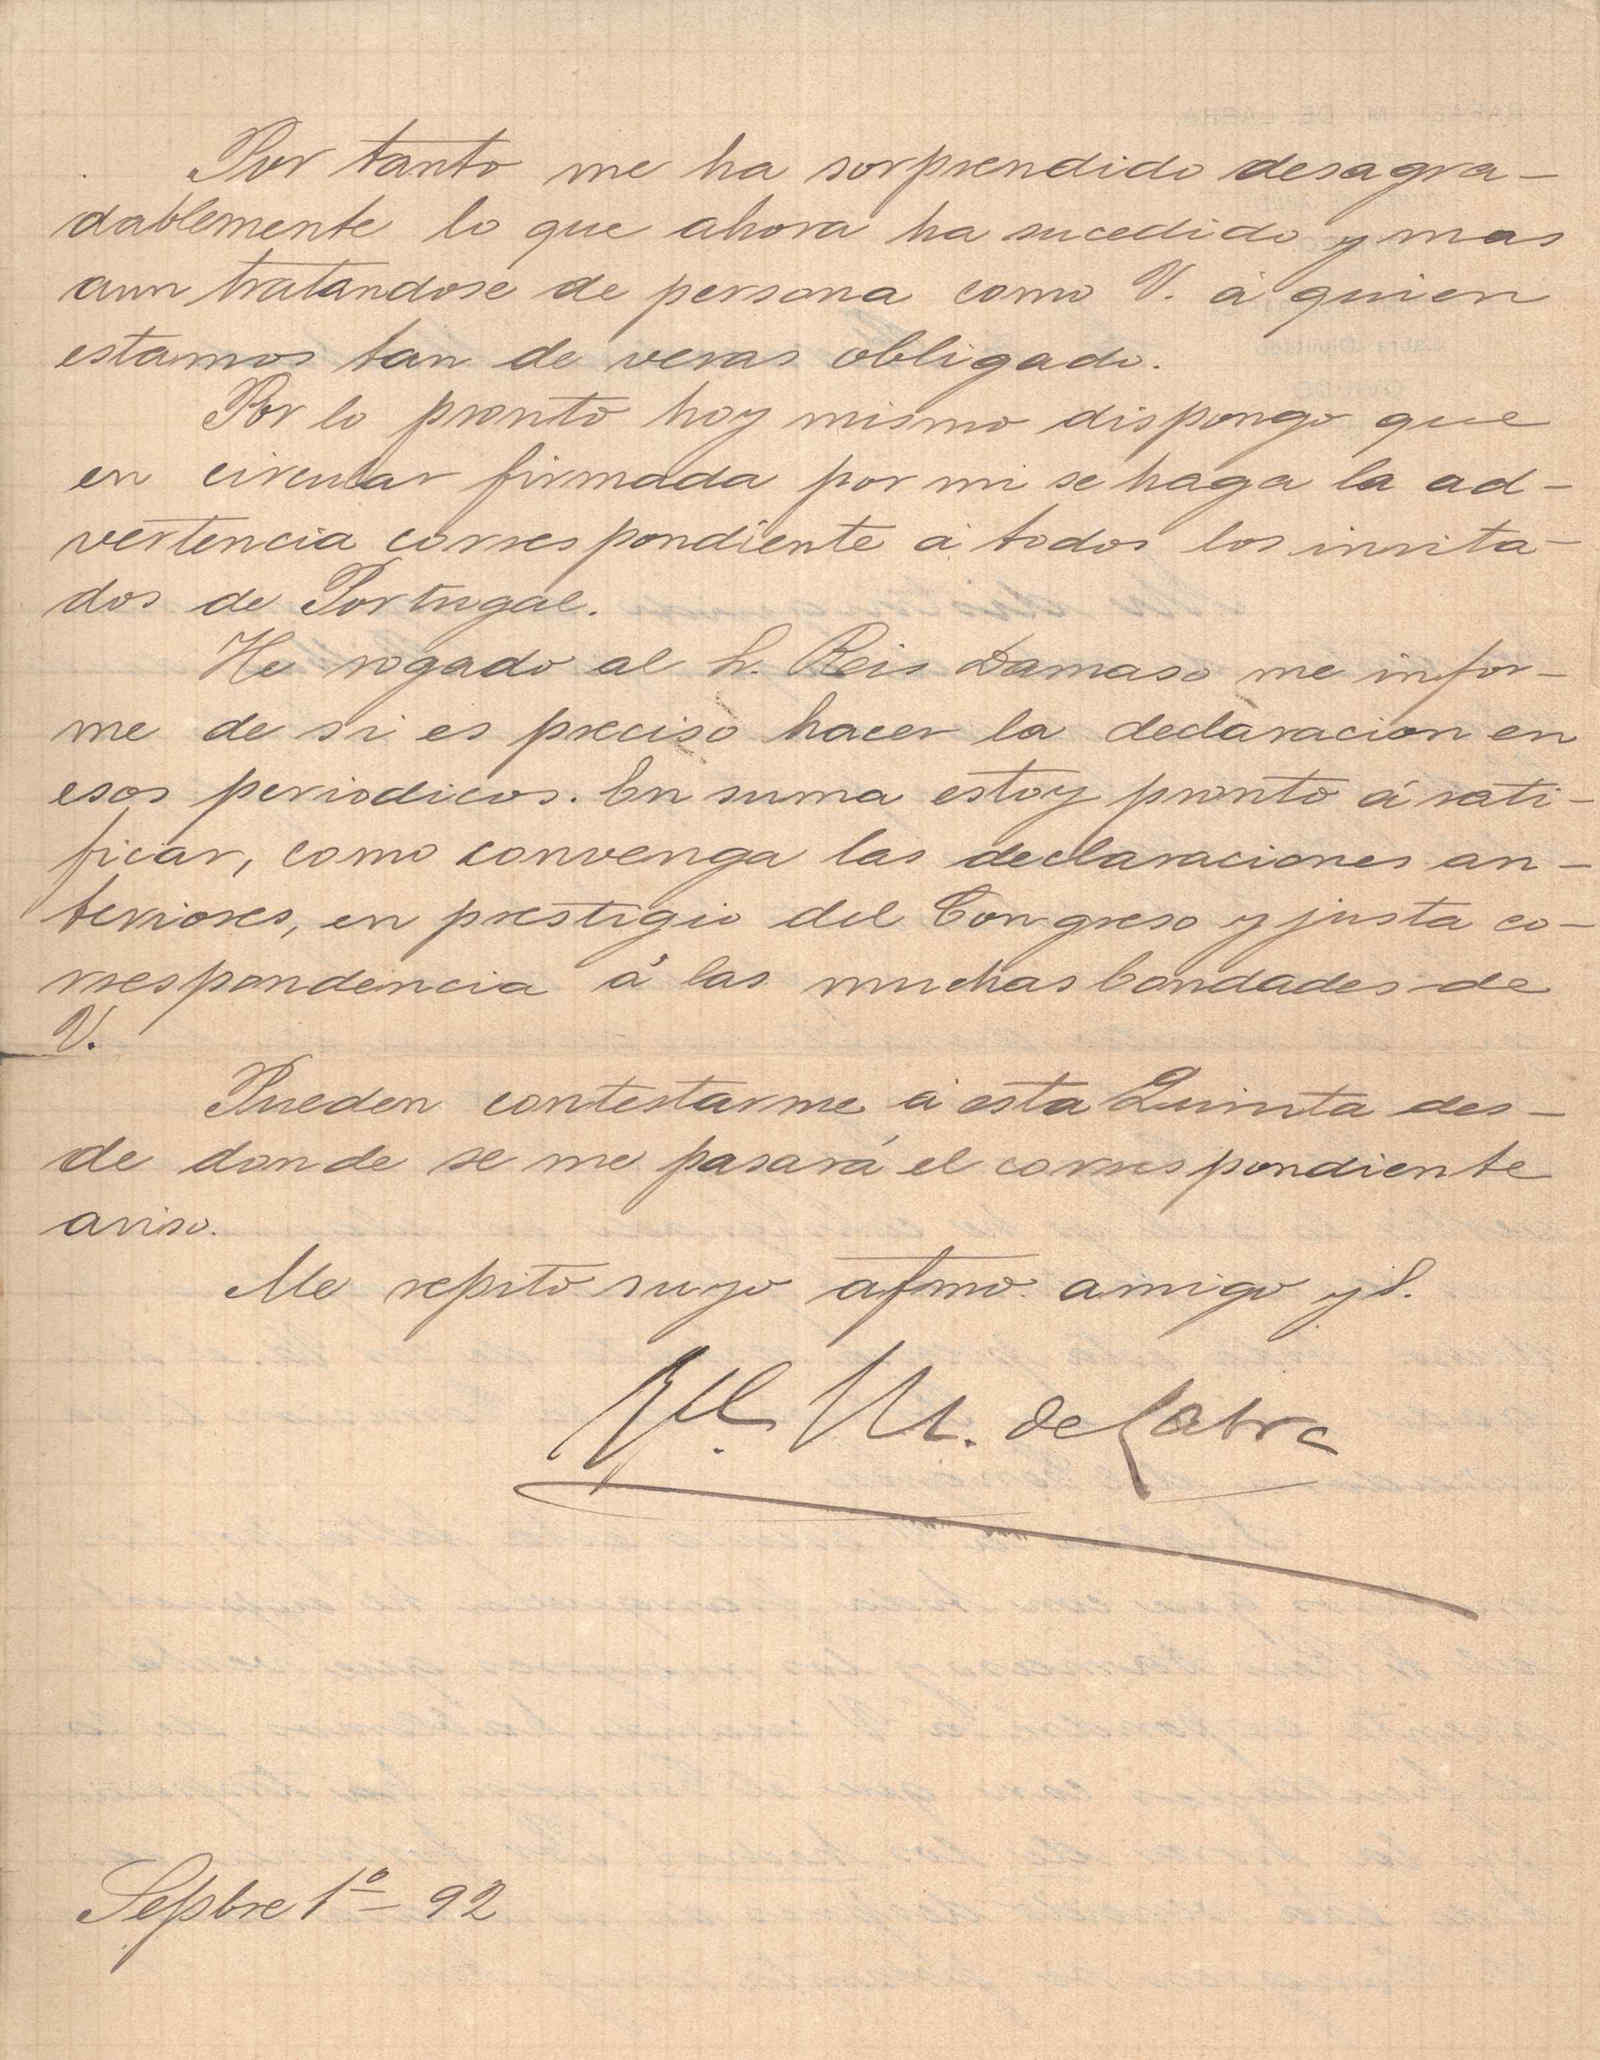 Por tanto me ha sorprendido desagra-
dablemente lo que ahora ha sucedido y mas
aun tratandose de persona como V. á quien
estamos tan de veras obligado.
Por lo pronto hoy mismo dispongo que
en circular firmada por mi se haga la ad-
vertencia correspondiente á todos los invita-
dos de Portugal.
He rogado al S. Reis Damaso me infor-
me de si es preciso hacer la declaracion en
esos periodicos. En suma estoy pronto á rati-
ficar, como convenga las declaraciones an-
teriores, en prestigio del Congreso y justa co-
rrespondencia á las muchas bondades de
V.
Pueden contestarme á esta Quinta des-
de donde se me pasará el correspondiente
aviso.
Me repito suyo afmo. amigo y S.
Rfl. M. de Labra
Sepbre 1º - 92